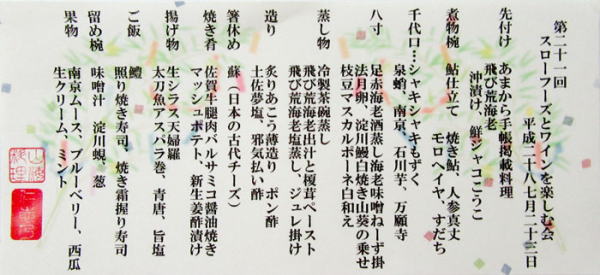 第二十一回
スローフーズとワインを楽しむ会
平成二十八七月二十三日
先付け あまから手帳掲載料理
飛び荒海老
沖漬け、鮮ジャコこうこ
煮物椀 鮎仕立て 焼き鮎、人参真丈
モロヘイヤ、すだち
千代口…シャキシャキもずく
泉蛸、南京、石川芋、万願寺
八寸 足赤海老酒蒸し海老味噌ねーず掛
法月卵、淀川鰻白焼き山葵の乗せ
枝豆マスカルポーネ白和え
蒸し物 冷製茶碗蒸し
飛び荒海老出汁と榎茸ペースト
飛び荒海老塩蒸し、ジュレ掛け
造り 炙りあこう薄造り ポン酢
土佐夢塩、邪気払い酢
箸休め 蘇（日本の古代チーズ）
焼き肴 佐賀牛腿肉バルサミコ醤油焼き
マッシュポテト、新生姜酢漬け
揚げ物 生シラス天婦羅
太刀魚アスパラ巻、青唐、旨塩
ご飯 鱧
照り焼き寿司、焼き霜握り寿司
留め椀 味噌汁 淀川蜆、葱
果物 南京ムース、ブルーベリー、西瓜
生クリーム、ミント